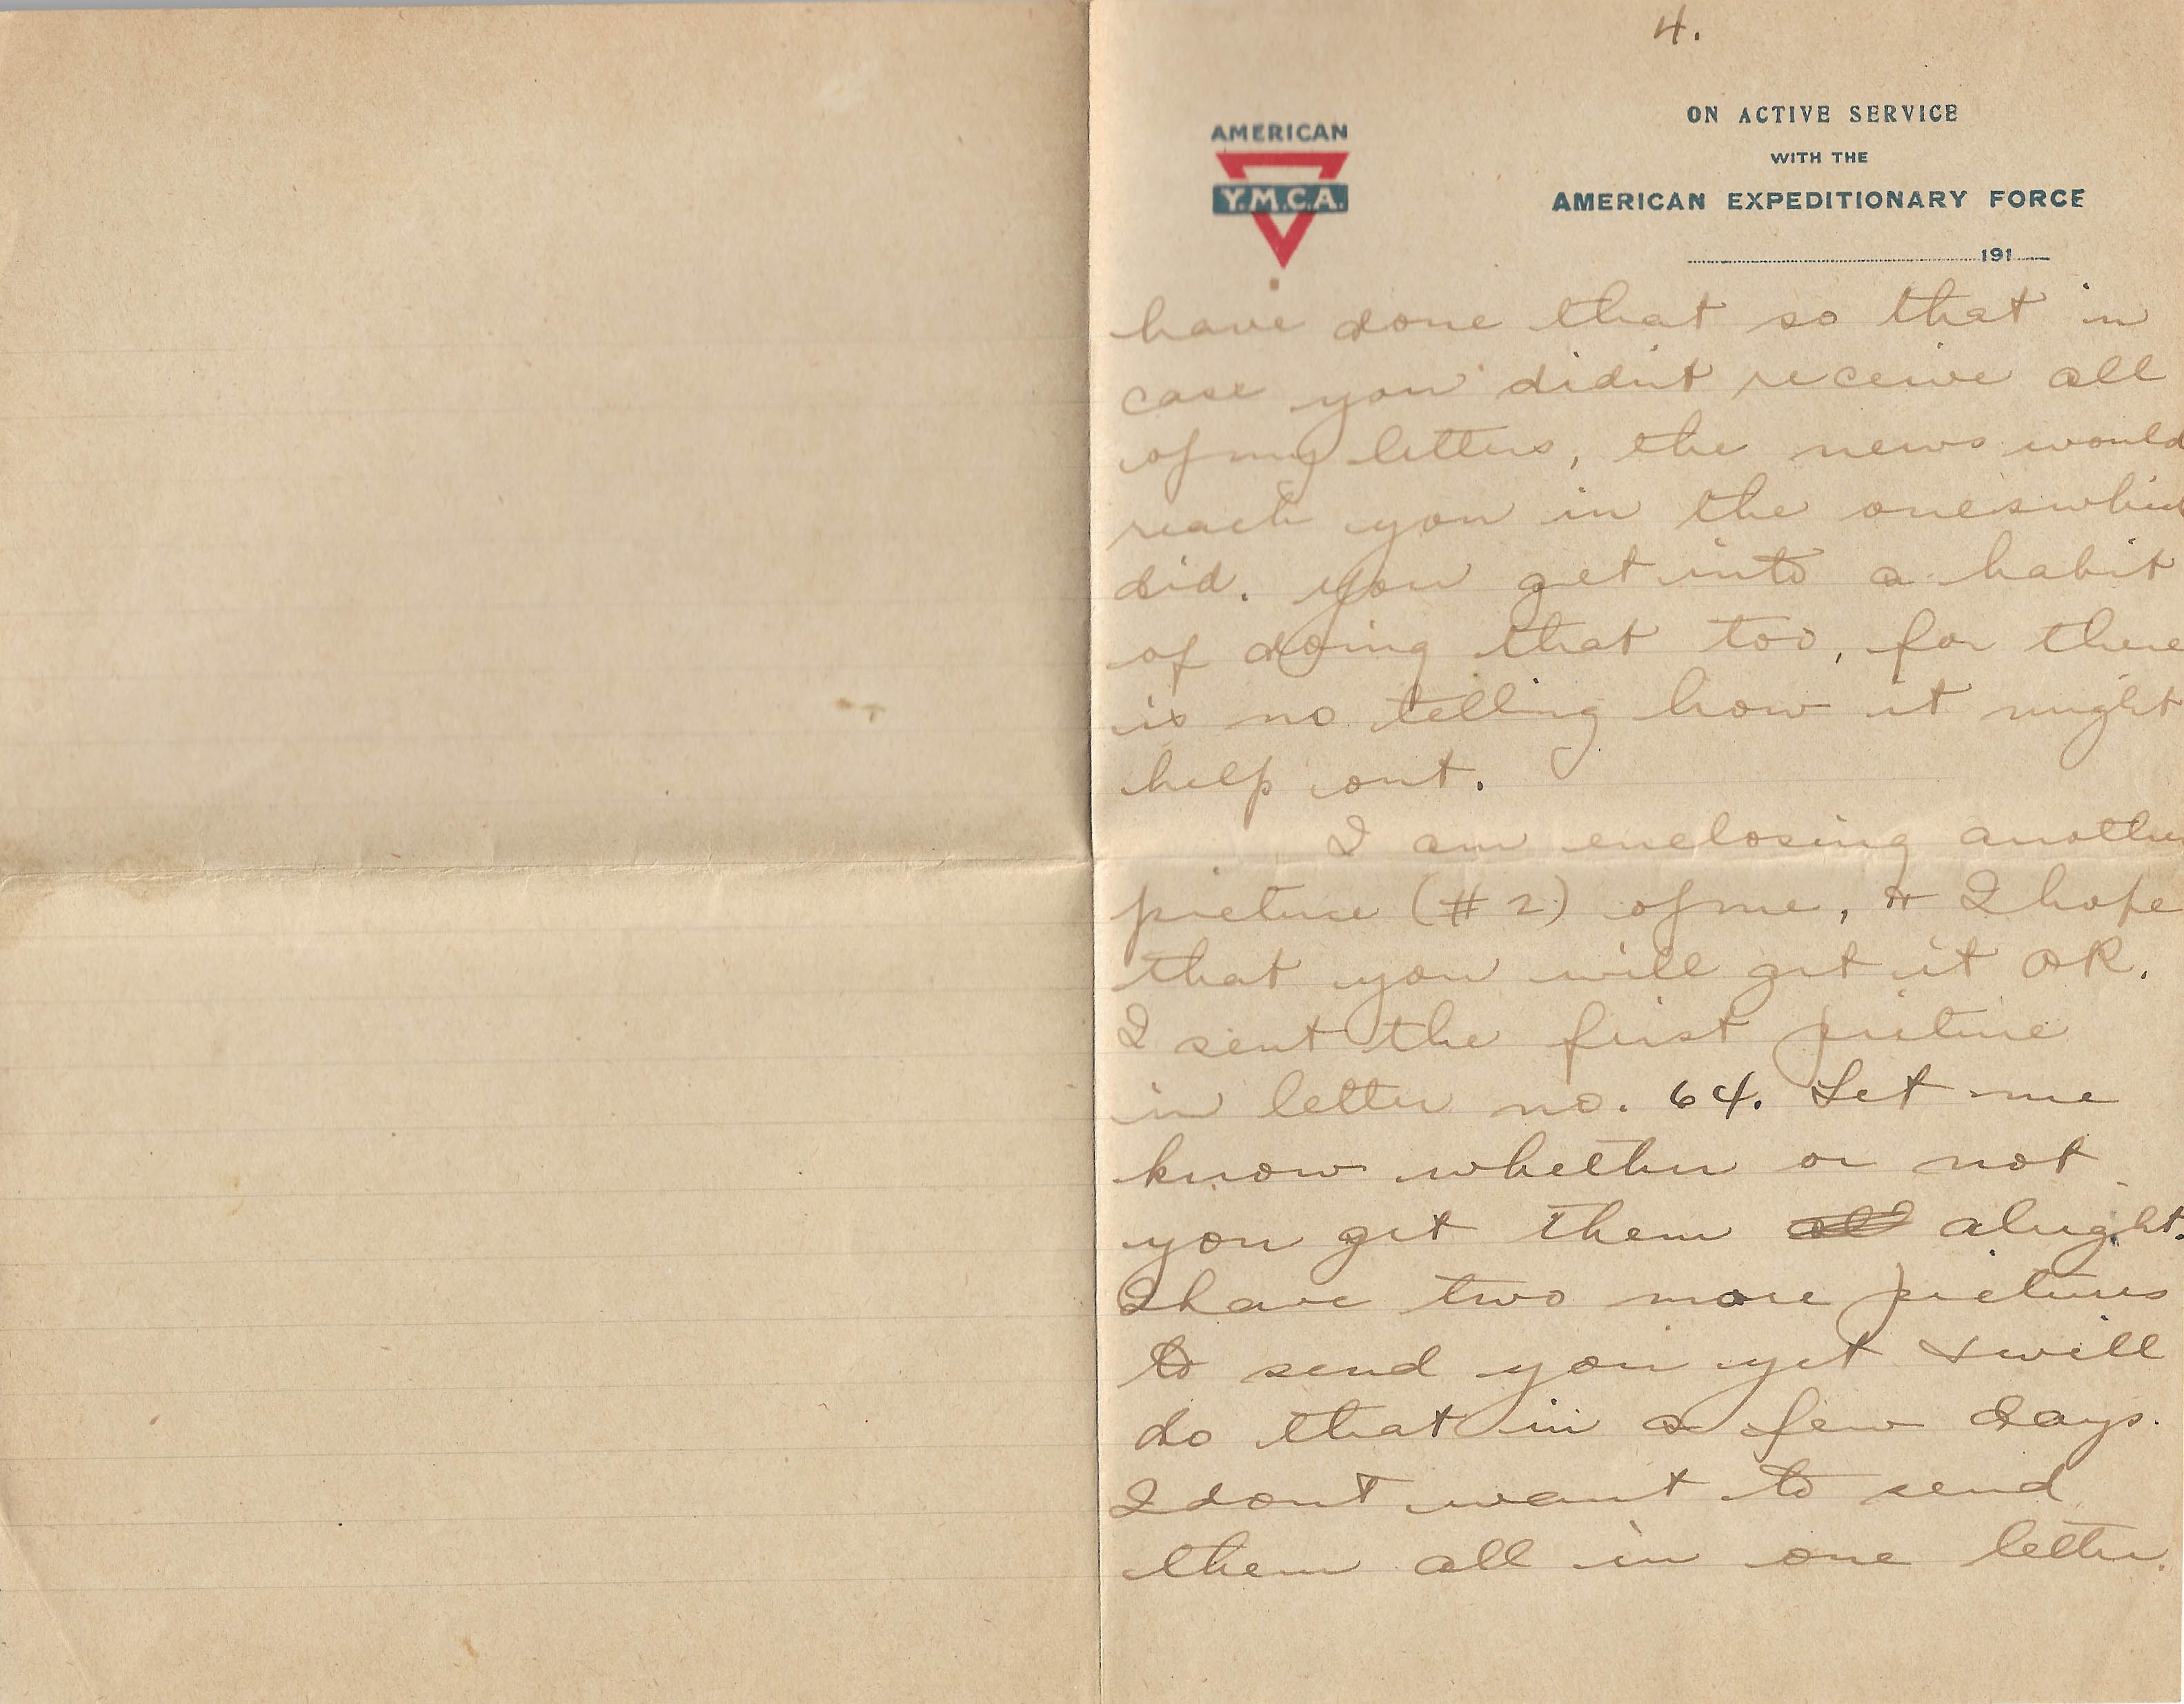 4.
AMERICAN
Y.M.C.A.
ON ACTIVE SERVICE
WITH THE
AMERICAN EXPEDITIONARY FORCE
191
have done that so that in
case you didn't receive all
of my letters, the news would
reach you in the ones which
did. You get into a habit
of doing that too, for there
is no telling how it might
help out.
I am enclosing another
picture (#2) of me, & I hope
that you will get it OK.
I sent the first picture
in letter no. 64. Let me
know whether or not
you get them all alright.
I have two more pictures
to send you yet & will
do that in a few days.
I don't want to send
them all in one letter.